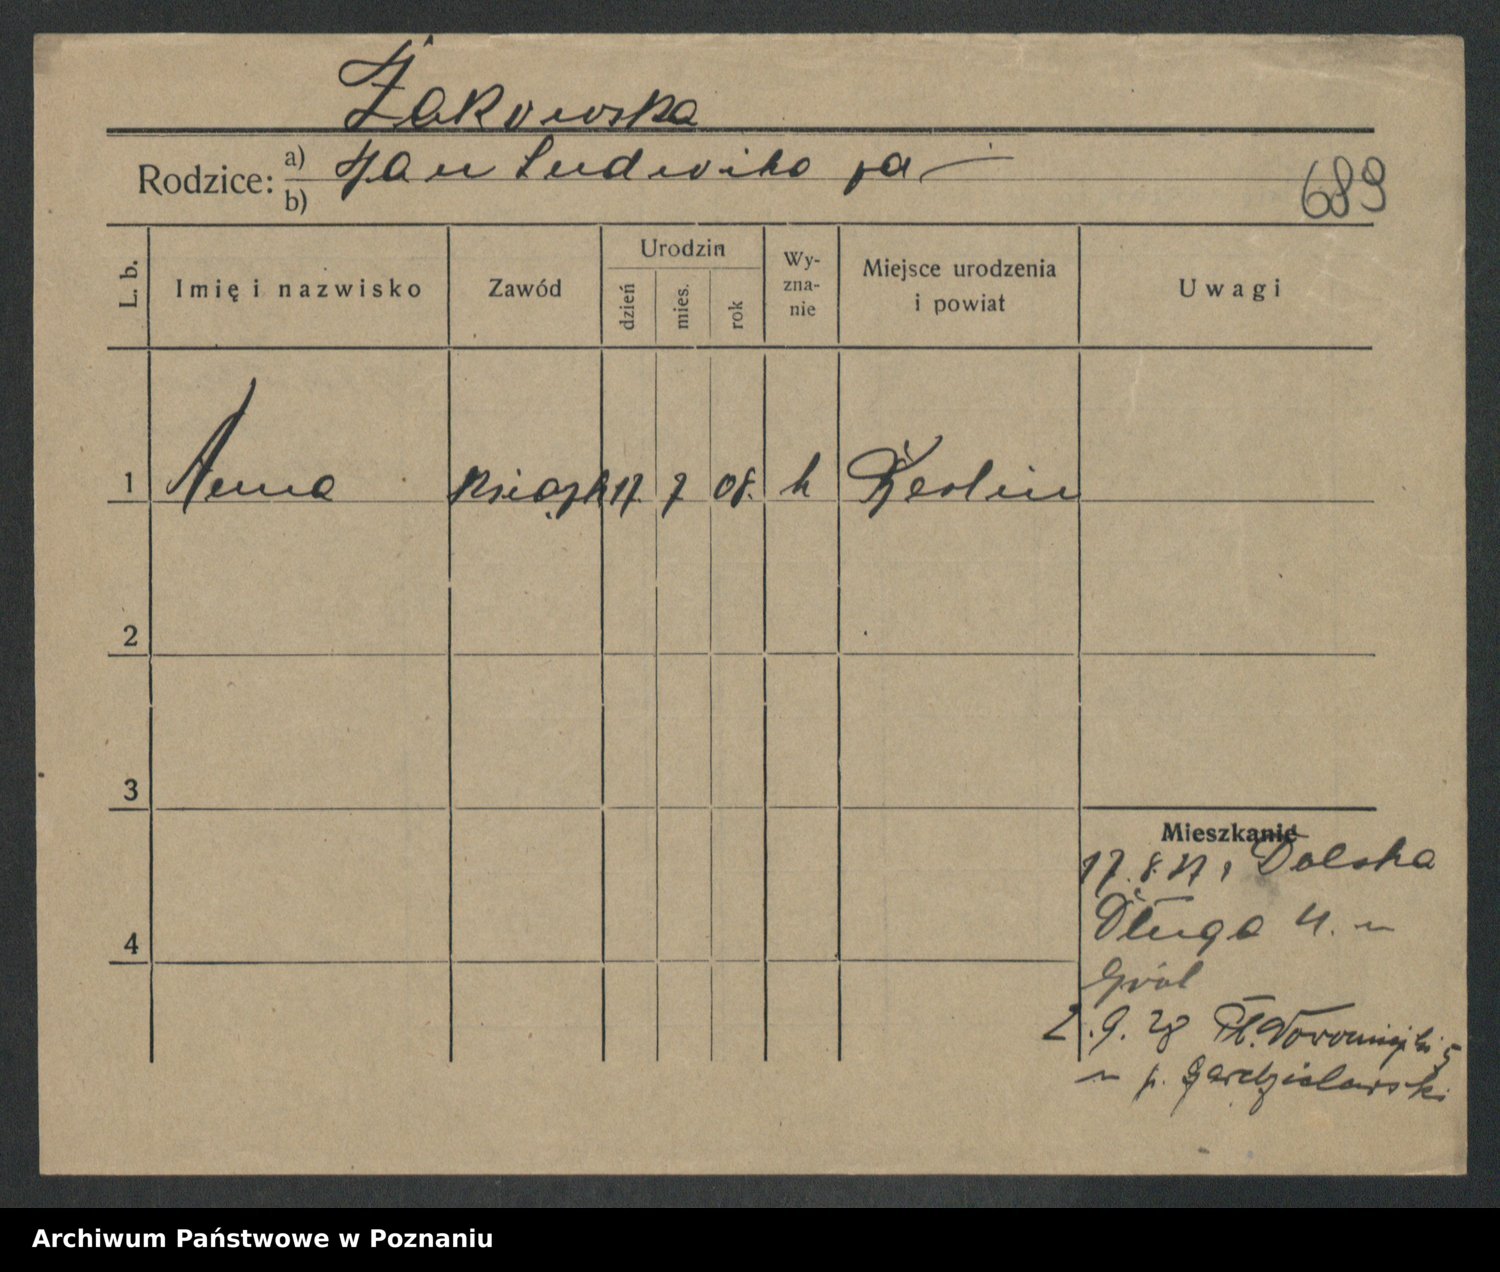 Żakowska
Rodzice: a) Jan Ludwika
b)
689
L. b. Imię i nazwisko Zawód Urodzin dzień mies. rok Wyzna-nie Miejsce urodzenia i powiat Uwagi
1 Anna 17. 7 08. k
2
3
Mieszkanie
17. 8. Dolska
Długa 4. u
4
Król
2. 9. 28 Pl. 5
u p.
Archiwum Państwowe w Poznaniu